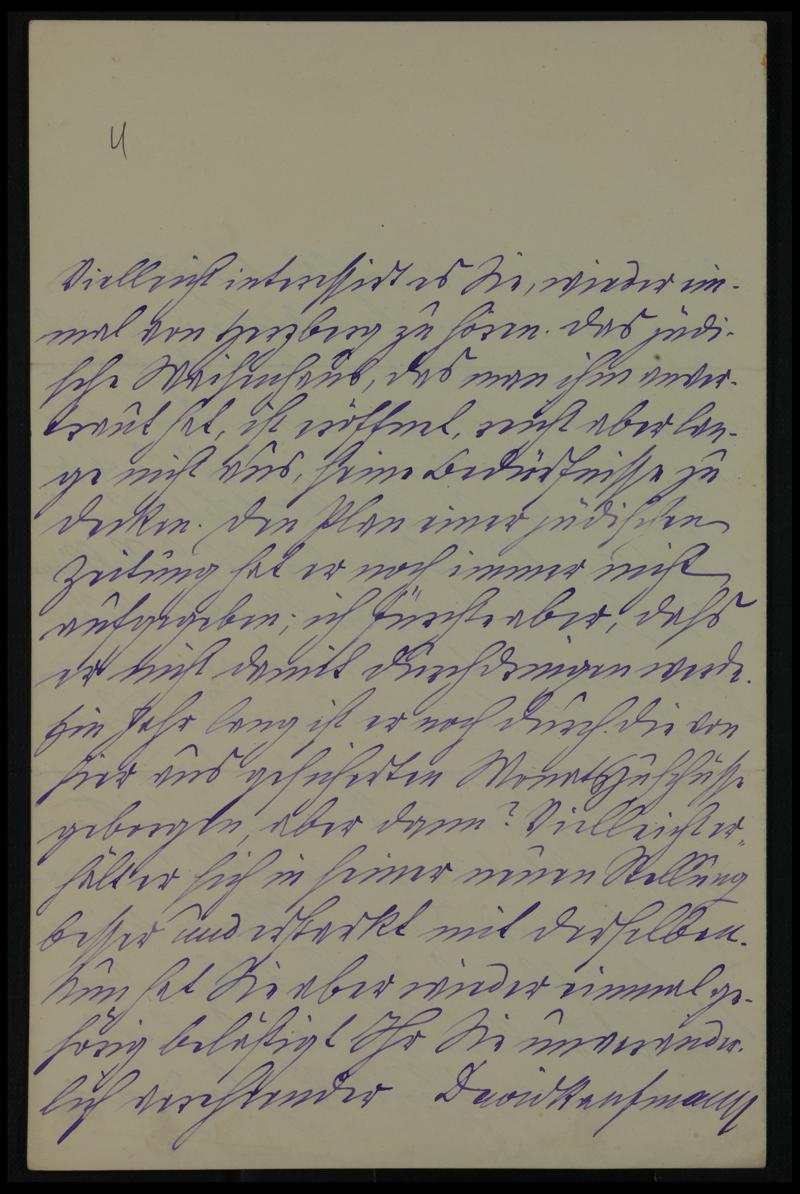 4
Vielleicht interessirt es Sie, wieder ein-
mal von Herzberg zu hören. Das jüdi-
sche Waisenhaus, das man ihm anver-
traut hat, ist eröffnet, reicht aber lan-
ge nicht aus, seine Bedürfnisse zu
decken. Den Plan einer jüdischen
Zeitung hat er noch immer nicht
aufgegeben; ich fürchte aber, daſs
er nicht damit durchdringen werde.
Ein Jahr lang ist er noch durch die von
hier aus gesicherten Monatszuschüsse
geborgen, aber dann? Vielleicht er-
hält er sich in seiner neuen Stellung
besser und erstarkt mit derselben.
Nun hat Sie aber wieder einmal ge-
hörig belästigt Ihr Sie unveränder-
lich verehrender David Kaufmann